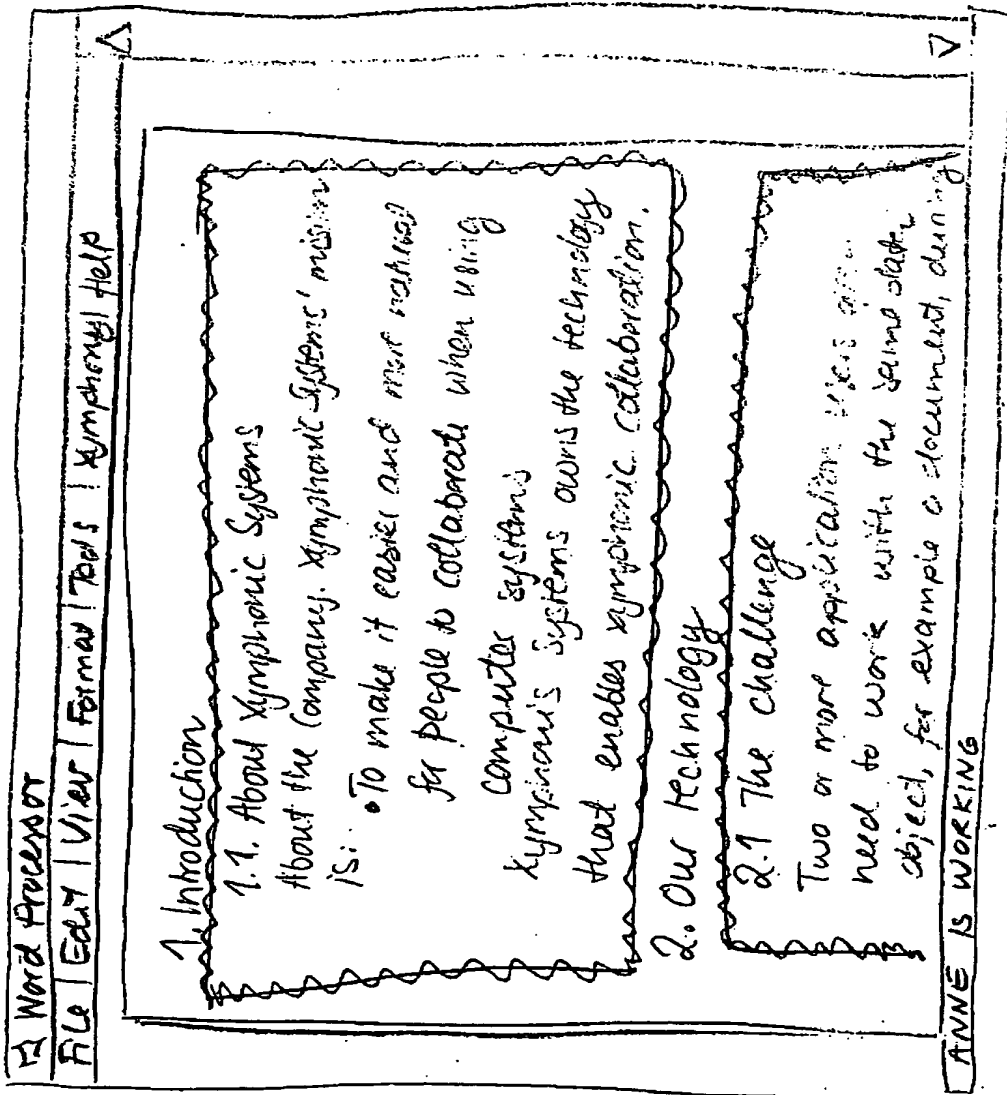 Word Processor
File | Edit | View | Format | Tools | Xymphony | Help
1. Introduction
1.1. About Xymphonic Systems
About the Company. Xymphonic Systems' mision
is:
• To make it easier and more natural
for people to collaborate when using
computer systems
Xymphonic Systems owns the technology
that enables xymphonic collaboration.
2. Our technology
2.1 The challenge
Two or more application users
need to work with the same data
object, for example a document, during
ANNE IS WORKING